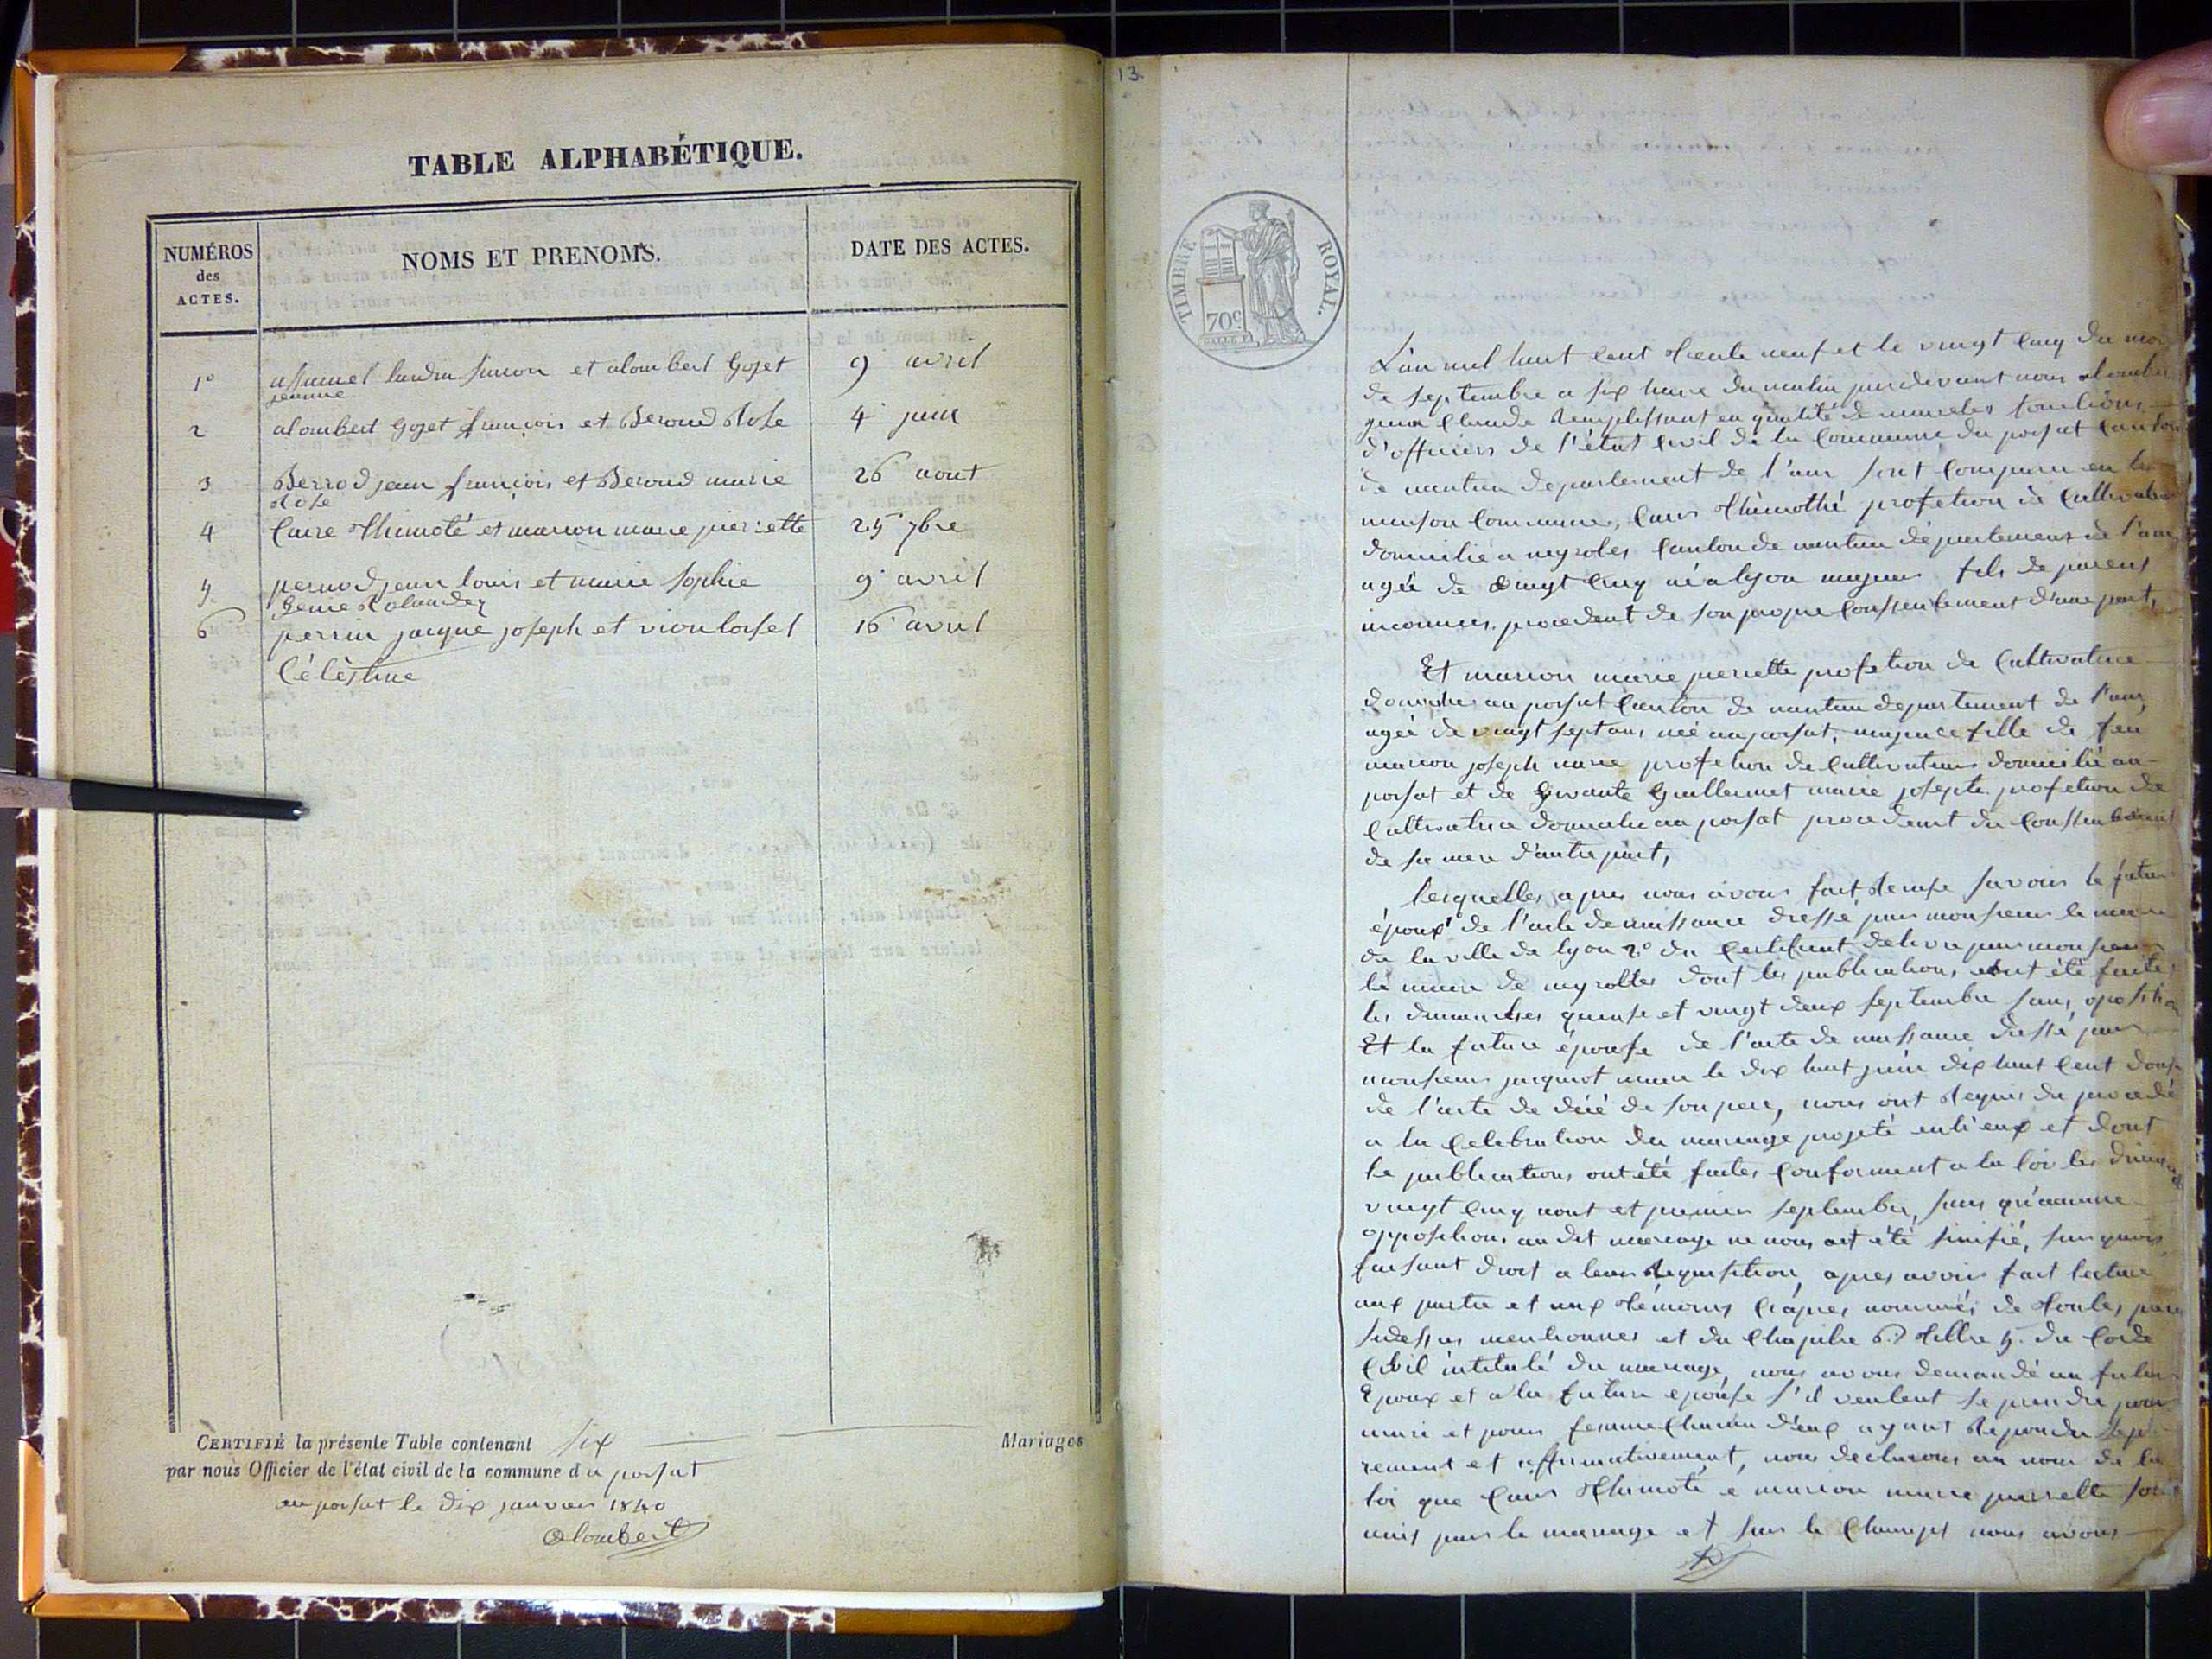 TABLE ALPHABÉTIQUE.
NUMÉROS des ACTES.
NOMS ET PRENOMS.
DATE DES ACTES.
1° assumel landru simon et alombert Gojet 9 avril
jeanne
2 alombert Gojet françois et Beroud Rose 4 juin
3 Berrod jean françois et Beroud marie 26 aout
Rose
4 Caire thimoté et marion marie pierrette 25 7bre
5 pernod jean louis et marie sophie 9 avril
6 perrin jacque joseph et 16 avril
Célèstine
CERTIFIÉ la présente Table contenant six Mariages
par nous Officier de l'état civil de la commune du porsat
au porsat le dix janvier 1840
Alombert
13.
TIMBRE ROYAL.
70c
L'an mil huit cent trente neuf et le vingt cinq du mois
de septembre a six heure du matin pardevant nous alombert
claude remplissant en qualité de les fonctions
d'officiers de l'état civil de la Commune du porsat canton
de nantua departement de l'ain sont comparu en la
maison commune, Caire thimothé profetion de Cultivateur
domicilié a neyroles Canton de nantua département de l'ain
agée de vingt cinq né a lyon majeur fils de parens
inconnus. procedent de son propre Consentement d'une part,
Et marion marie pierrette profetion de Cultivatrice
domicilié au porsat Canton de nantua departement de l'ain
agée de vingt sept ans née au porsat, majeure fille de feu
marion joseph marie profetion de Cultivateur domicilié au
porsat et de Guillermet marie josepte profetion de
Cultivatrice domicilié au porsat procedent du Consentement
de sa mere d'autre part,
lesquelles apres nous avoir fait remise savoir le futur
époux de l'acte de naissance dressé par monsieur le maire
de la ville de lyon 2° du Certificat delivré par monsieur
le maire de neyrolles dont les publications ont été faites
les dimanches quinse et vingt deux septembre sans oposition
Et la future épouse de l'acte de naissance dressé par
monsieur jacquiot maire le dix huit juin dix huit Cent douse
de l'acte de décé de son pere, nous ont requis de procedé
a la Celebration du mariage projeté entr'eux et dont
les publications ont été faites Conforment a la loi les dimanches
vingt cinq aout et premier septembre, sans qu'aucune
oppositions au dit mariage ne nous ait été sinifié, sur quois
faisant droit a leur Requisition, apres avoir fait lecture
aux partie et aux témoins Ciapres nommés de toutes
sudessus mentionnes et du Chapitre 6 titre 5. du Code
Civil intitulé du mariage, nous avons demandé au futur
Epoux et a la future epouse s'il veulent se prendre pour
mari et pour femme Chacun d'eux ayant Repondu
rement et affirmativement, nous declarons au nom de la
loi que Caire thimoté e marion marie pierrette sont
unis par le mariage et sur le Champs nous avons